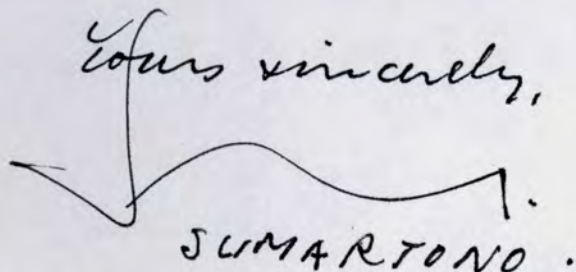 Yours sincerely,
SUMARTONO.